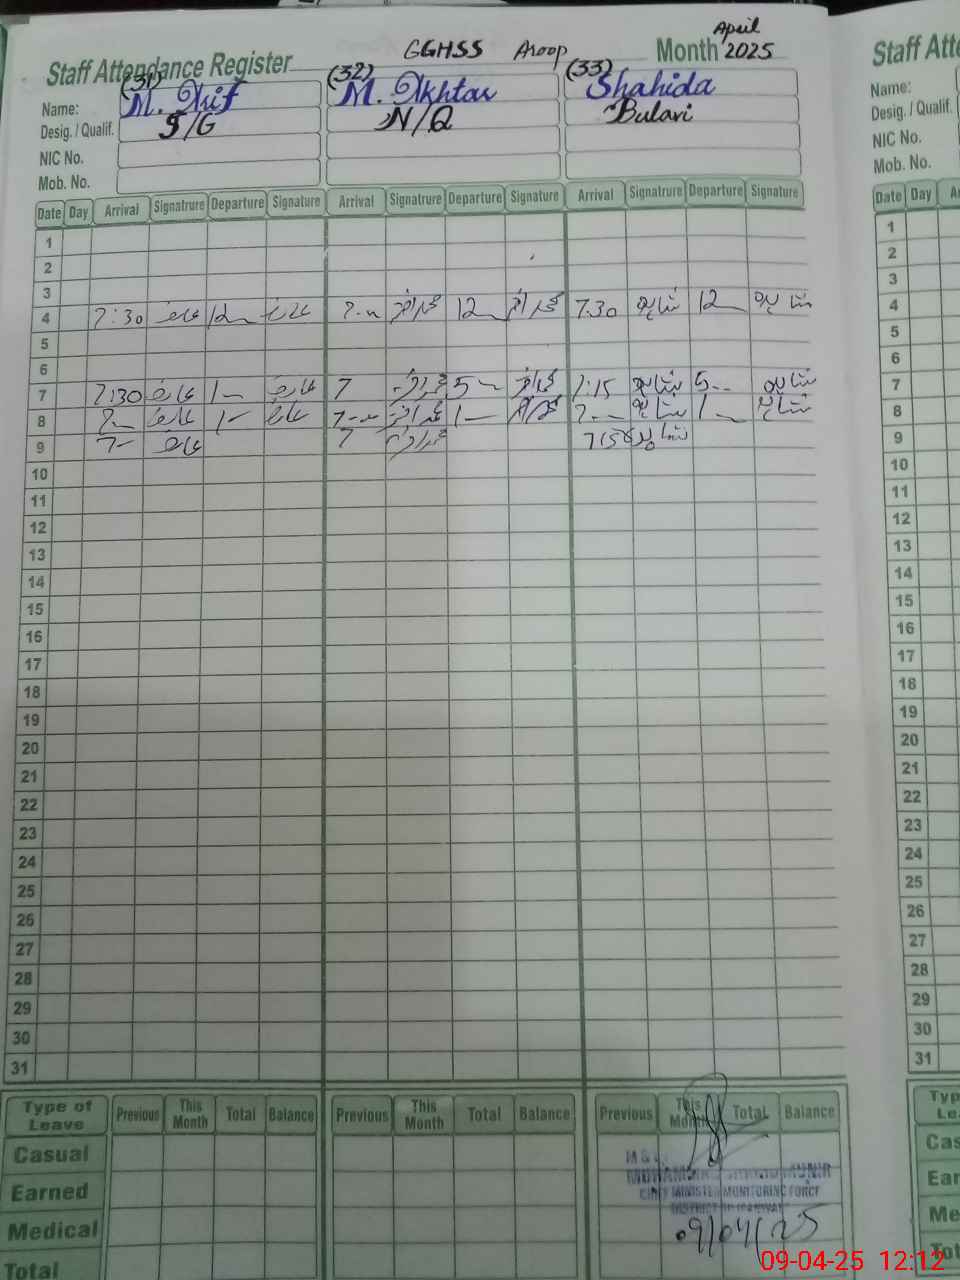 GGHSS Aroop
Staff Attendance Register Month April 2025
(31) (32) (33)
Name: M. Arif M. Akhtar Shahida
Desig. / Qualif. S/G N/Q Bulavi
NIC No.
Mob. No.
Date Day Arrival Signatrure Departure Signature Arrival Signatrure Departure Signature Arrival Signatrure Departure Signature
1
2
3
4 7:30 عارف 12 عارف 7.00 12 7.30 شاہدہ 12 شاہدہ
5
6
7 7:30 عارف 1 عارف 7 5 7:15 شاہدہ 5 شاہدہ
8 7 عارف 1 عارف 7 1 7 شاہدہ 1 شاہدہ
9 7 عارف 7 7:15 شاہدہ
10
11
12
13
14
15
16
17
18
19
20
21
22
23
24
25
26
27
28
29
30
31
Type of Leave Previous This Month Total Balance Previous This Month Total Balance Previous This Month Total Balance
Casual
Earned
Medical
Total
CHIEF MINISTER MONITORING FORCE
09/04/25
Staff Atte
Name:
Desig. / Qualif.
NIC No.
Mob. No.
Date Day
1
2
3
4
5
6
7
8
9
10
11
12
13
14
15
16
17
18
19
20
21
22
23
24
25
26
27
28
29
30
31
09-04-25 12:12